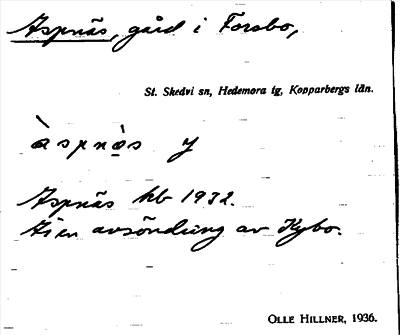 Aspnäs, gård i Forsbo,
St. Skedvi sn, Hedemora tg, Kopparbergs län.
àspnạ̀s y
Aspnäs kb 1932.
Är en avsöndring av Kybo.
OLLE HILLNER, 1936.